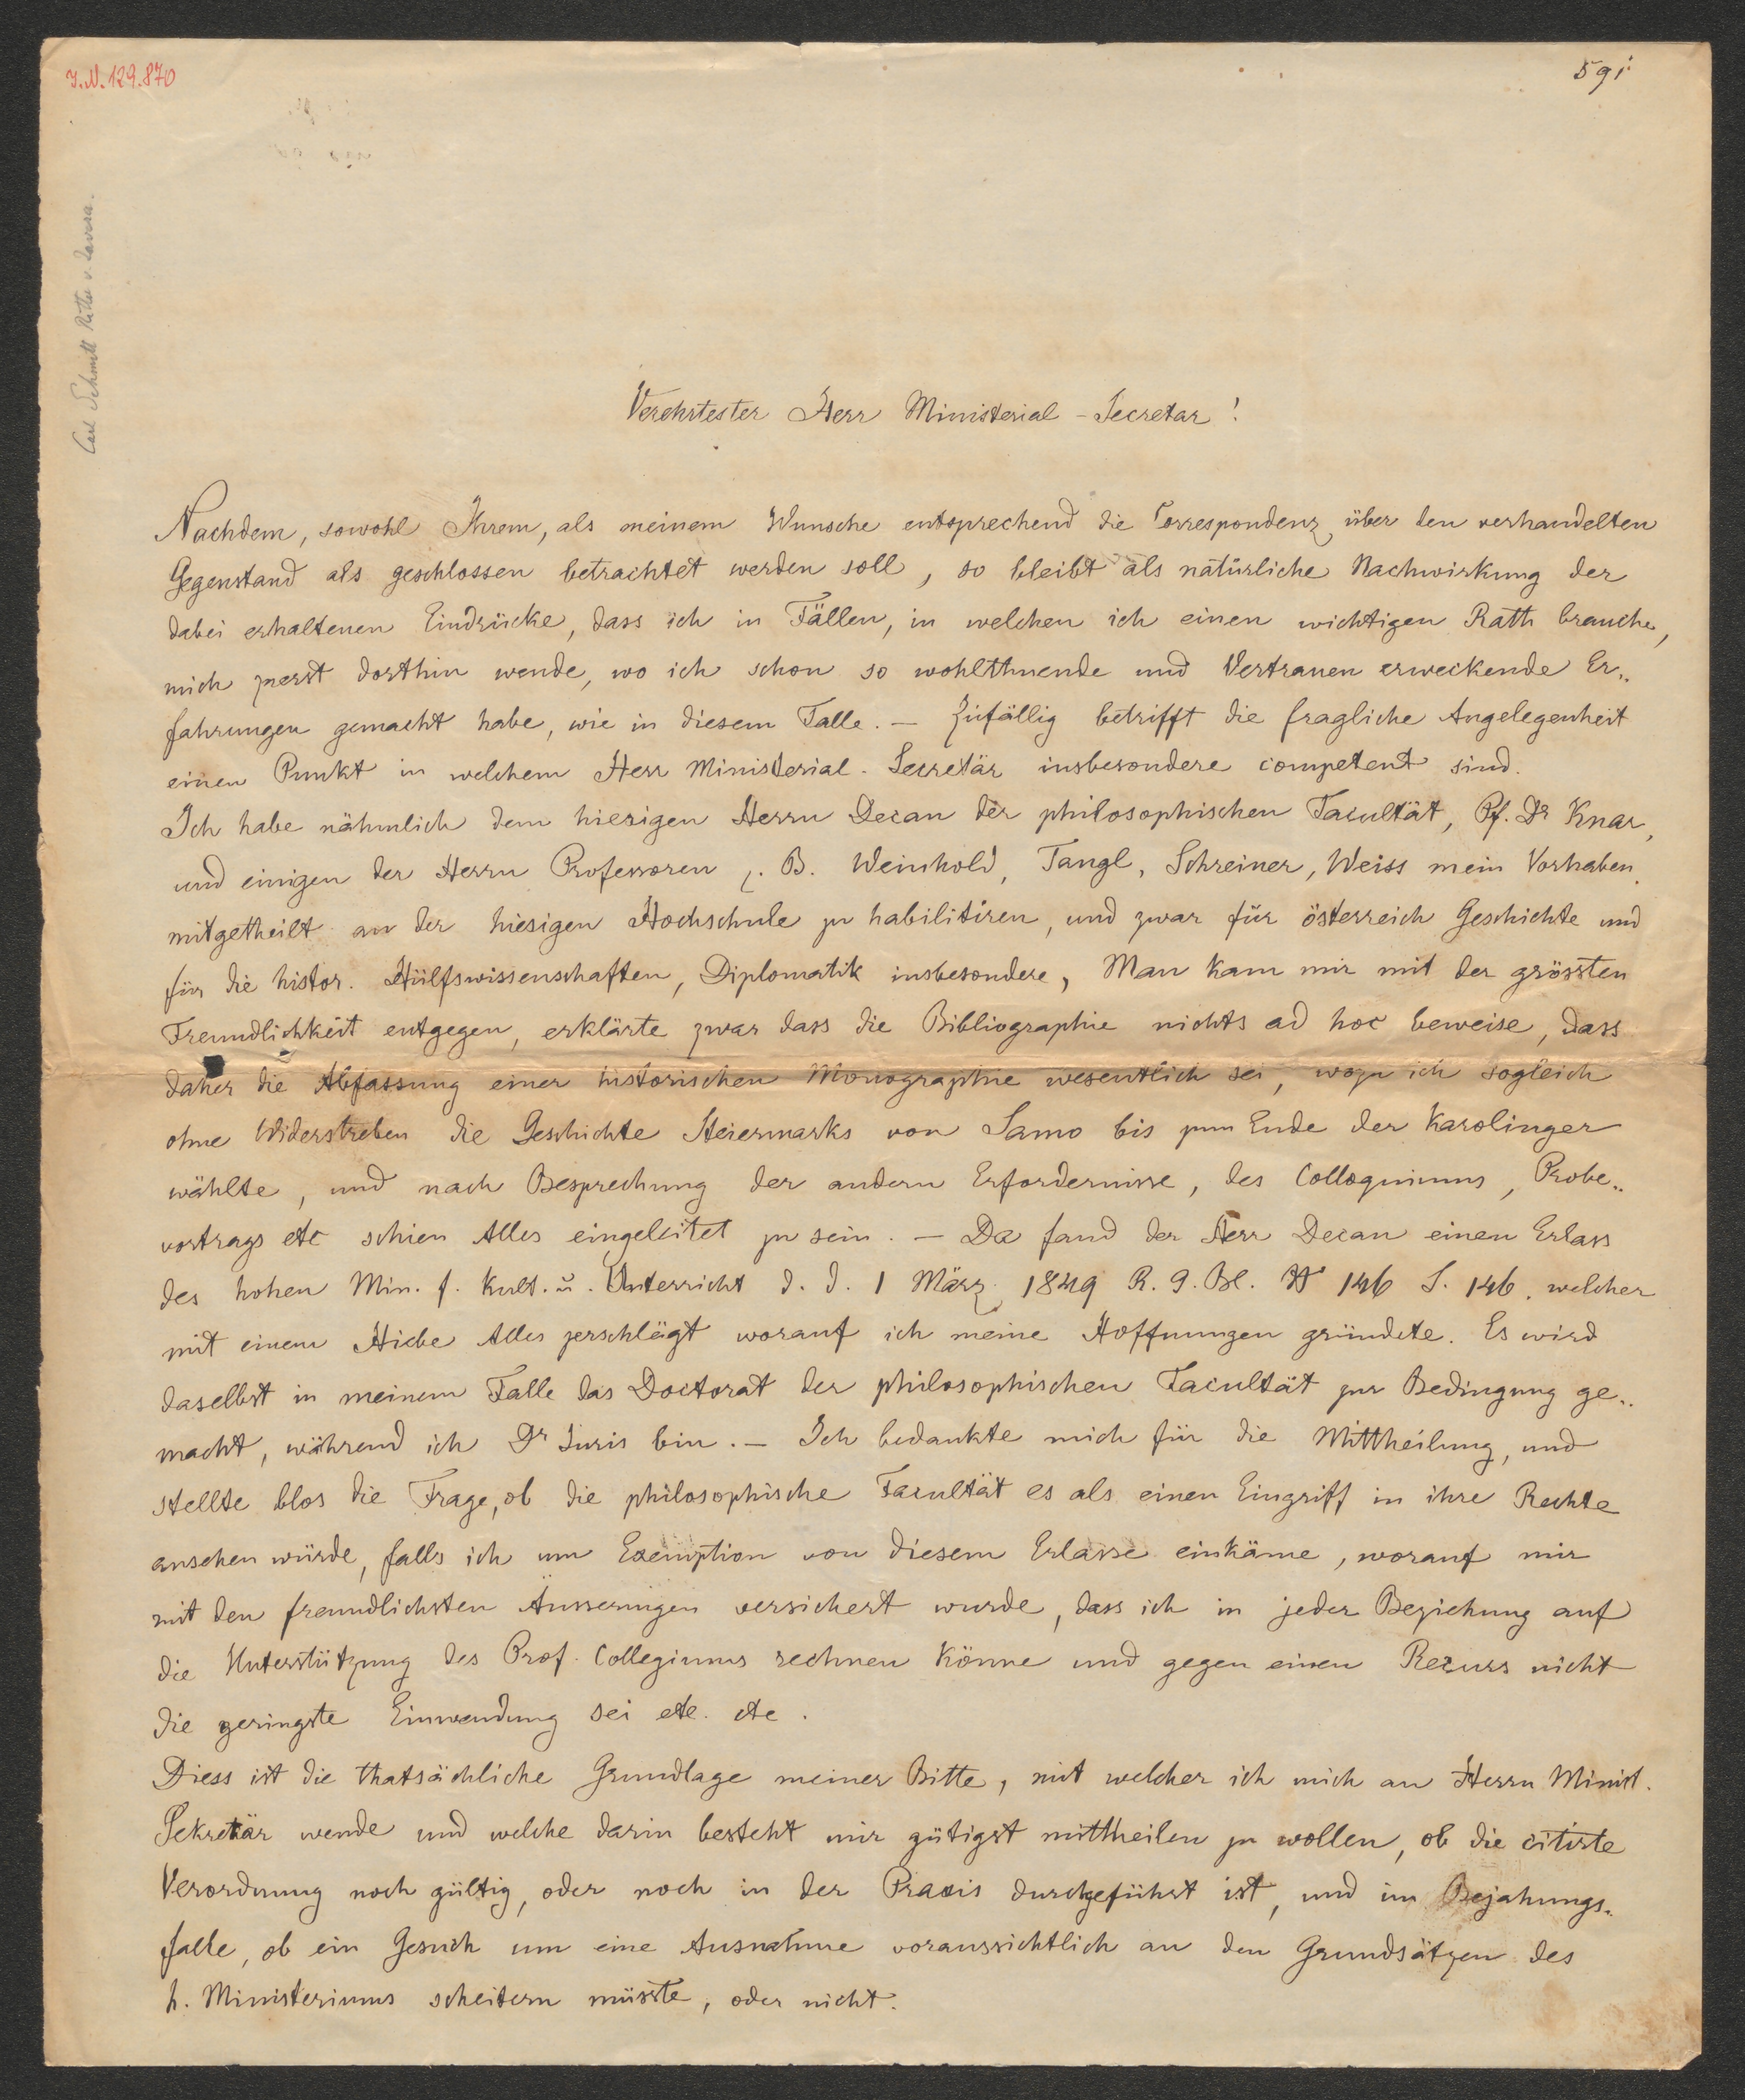 I.N. 129.870
591
Carl Schmitt Ritter v. Tavera.
Verehrtester Herr Ministerial-Secretar!
Nachdem, sowohl Ihrem, als meinem Wunsche entsprechend die Correspondenz über den verhandelten
Gegenstand als geschlossen betrachtet werden soll, so bleibt als natürliche Nachwirkung der
dabei erhaltenen Eindrücke, dass ich in Fällen, in welchen ich einen wichtigen Rath brauche,
mich zuerst dorthin wende, wo ich schon so wohlthuende und Vertrauen erweckende Er„
fahrungen gemacht habe, wie in diesem Falle. — Zufällig betrifft die fragliche Angelegenheit
einen Punkt in welchem Herr Ministerial-Secretär insbesondere competent sind.
Ich habe nähmlich dem hiesigen Herrn Decan der philosophischen Facultät, Pf. Dr Knar,
und einigen der Herrn Professoren z. B. Weinhold, Tangl, Schreiner, Weiss mein Vorhaben
mitgetheilt an der hiesigen Hochschule zu habilitiren, und zwar für österreich Geschichte und
für die histor. Hülfswissenschaften, Diplomatik insbesondere, Man kam mir mit der grössten
Freundlichkeit entgegen, erklärte zwar dass die Bibliographie nichts ad hoc beweise, dass
daher die Abfassung einer historischen Monographie wesentlich sei, wozu ich sogleich
ohne Widerstreben die Geschichte Steiermarks von Samo bis zum Ende der Karolinger
wählte, und nach Besprechung der andern Erfordernisse, des Colloquiums, Probe„
vortrags etc schien Alles eingeleitet zu sein. — Da fand der Herr Decan einen Erlass
des hohen Min. f. Kult. u. Unterricht d. d. 1 März 1849 R. G. Bl. N 146 S. 146. welcher
mit einem Hiebe Alles zerschlägt worauf ich meine Hoffnungen gründete. Es wird
daselbst in meinem Falle das Doctorat der philosophischen Facultät zur Bedingung ge„
macht, während ich Dr Juris bin. — Ich bedankte mich für die Mittheilung, und
stellte blos die Frage, ob die philosophische Facultät es als einen Eingriff in ihre Rechte
ansehen würde, falls ich um Exemption von diesem Erlasse einkäme, worauf mir
mit den freundlichsten Äusserungen versichert wurde, dass ich in jeder Beziehung auf
die Unterstützung des Prof. Collegiums rechnen könne und gegen einen Recurs nicht
die geringste Einwendung sei etc. etc.
Diess ist die thatsächliche Grundlage meiner Bitte, mit welcher ich mich an Herrn Minist.
Sekretär wende und welche darin besteht mir gütigst mittheilen zu wollen, ob die citirte
Verordnung noch gültig, oder noch in der Praxis durchgeführt ist, und im Bejahungs„
falle, ob ein Gesuch um eine Ausnahme voraussichtlich an den Grundsätzen des
h. Ministeriums scheitern müsste, oder nicht.